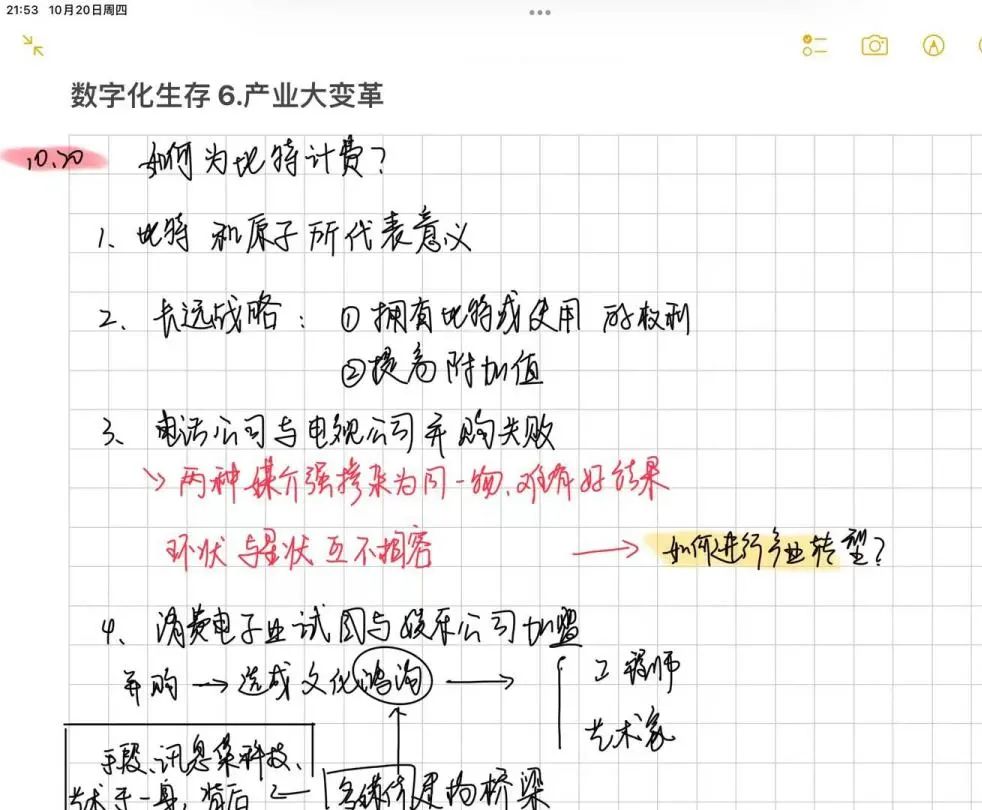 21:53 10月20日周四
数字化生存 6.产业大变革
10.20 如何为比特计费?
1、比特和原子所代表意义
2、长远战略:①拥有比特或使用的权利
②提高附加值
3、电话公司与电视公司并购失败
两种媒介强掺杂为同一物、难有好结果
环状与星状互不相容 → 如何进行产业转型?
4、消费电子业试图与娱乐公司加盟
并购 → 造成文化鸿沟 → 工程师
艺术家
手段、讯息集科技、
艺术于一身,背后 ← 多媒体是沟桥梁